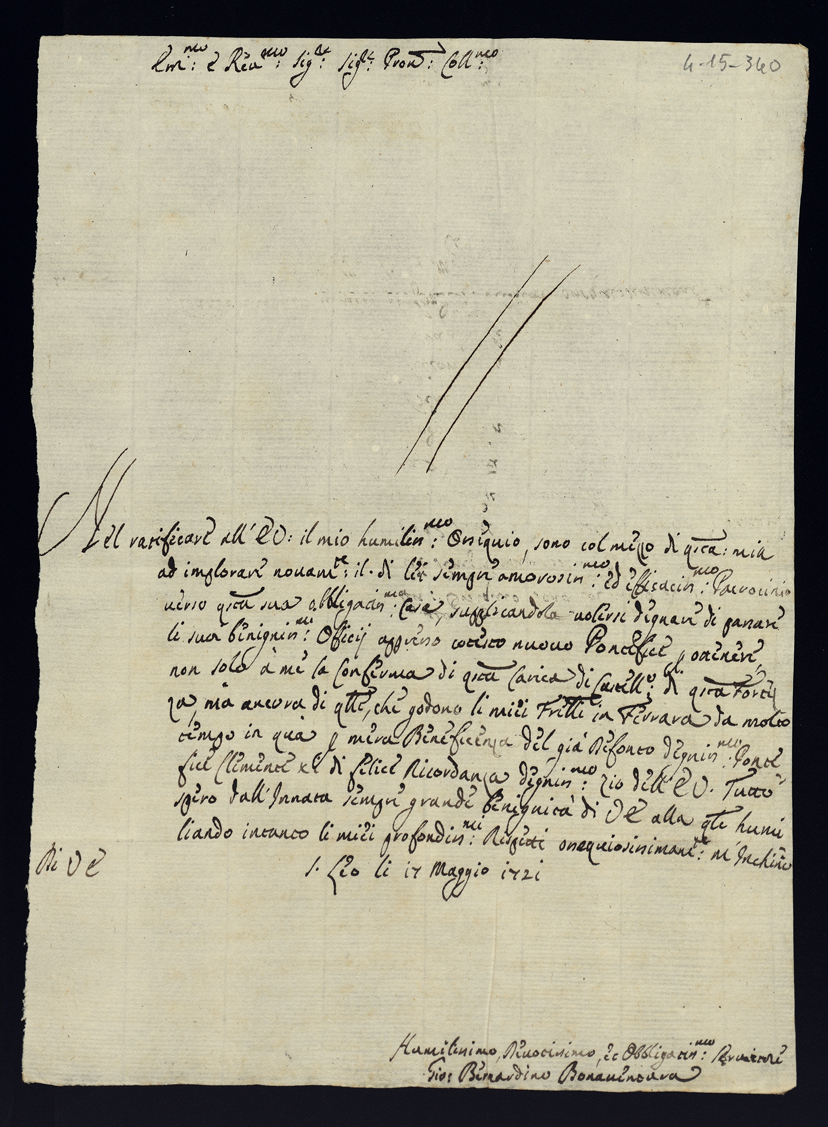 Em:mo e Reu:mo Sig:re Sig:re Pron: Coll:mo
4-15-340
Nel ratificare all' EV: il mio humiliss:mo Ossequio, sono col mezzo di qsta: mia
ad implorare nouam:te il di lei sempre amorosiss:mo ed efficaciss:mo Patrocinio
uerso qsta sua obbligatiss:ma Casa, supplicandola uolersi degnare di passare
li suoi benigniss:mi Officij appresso cotesto nuouo Pontefice p ottenere,
non solo à me la Conferma di qsta Carica di Castell:o di qsta Fortez
za, mà ancora di qlle, che godono li miei Frtlli in Ferrara da molto
tempo in quà p mera Beneficenza del già Defonto degniss:mo Ponte
fice Clemente XI di felice Ricordanza degniss:mo zio dell' EV. Tutto
spero dall' Innata sempre grande benignità di VE alla qle humi
liando intanto li miei profondiss:mi Rispetti ossequiosissimam:te m' Inchino
Di VE
S. Leo li 17 Maggio 1721
Humilissimo, Deuotissimo, et Obbligatiss:mo Seruitore
Gio: Bernardino Bonauentura